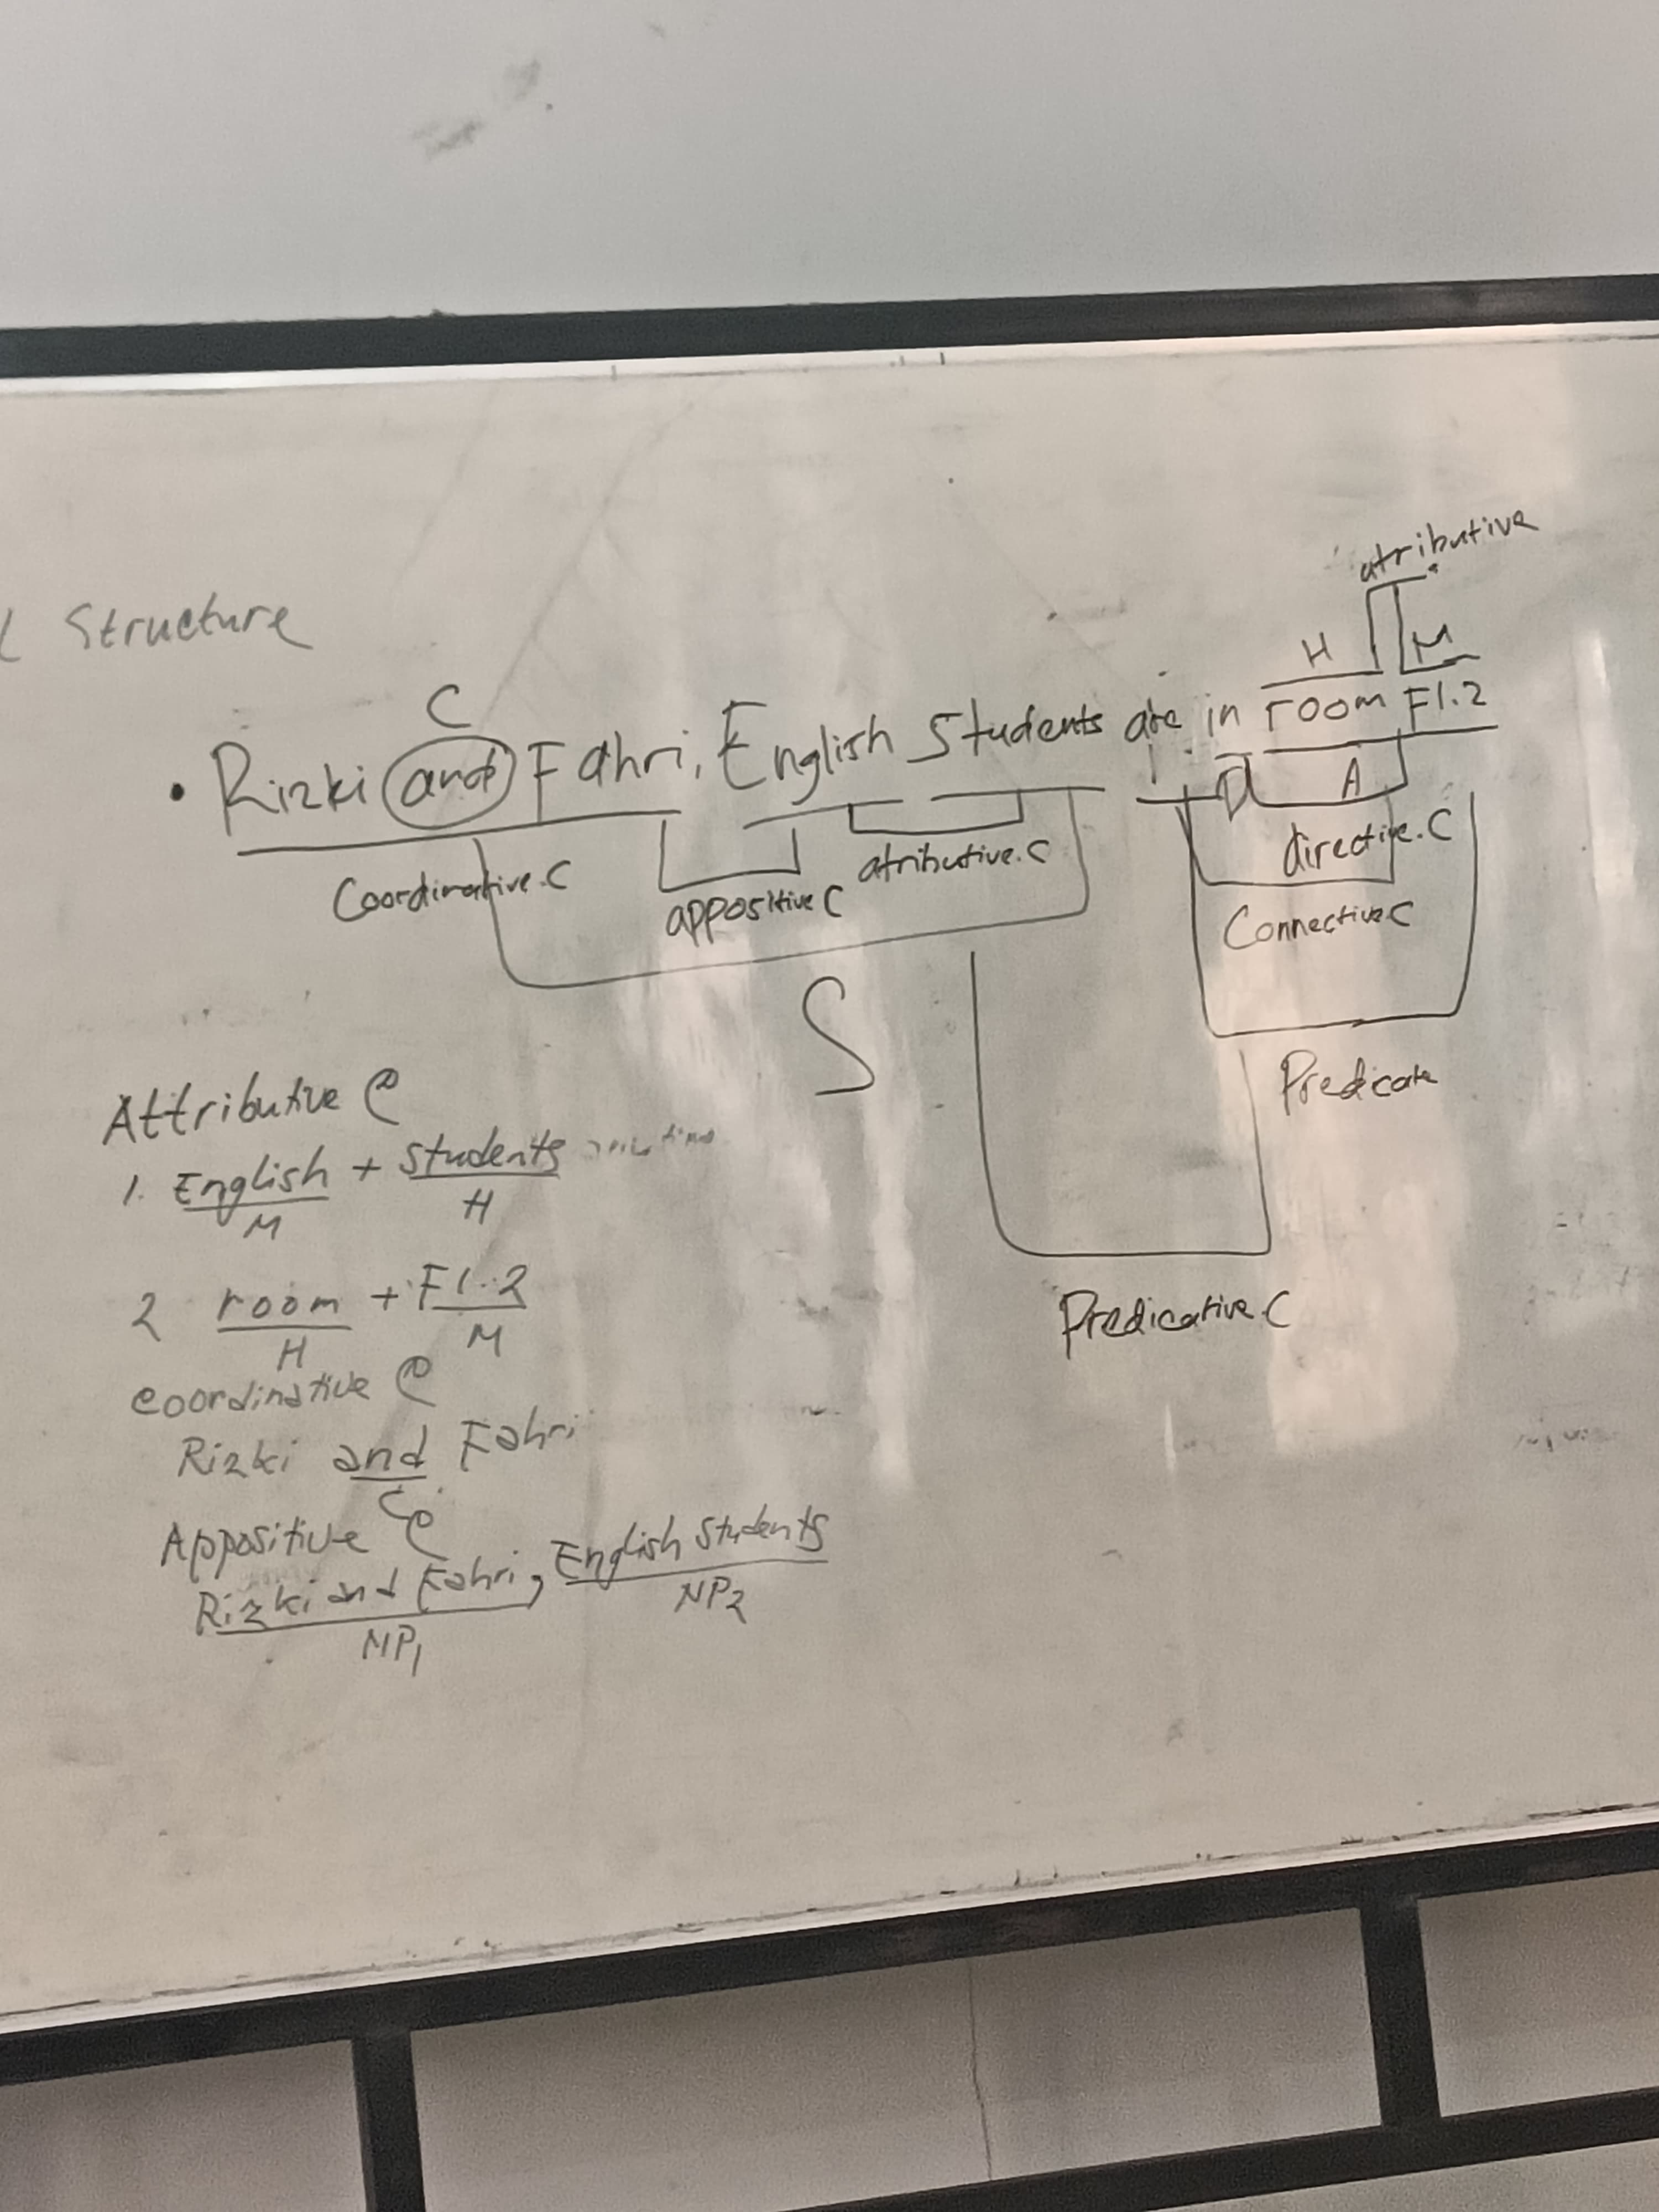 Structure
atributive
H M
C
• Rizki and Fahri, English Students are in room F1.2
D A
Coordinative.C appositive C atributive.C directive.C
Connective C
S
Predicate
Predicative.C
Attributive C
1. English + Students
M H
2 room + F1.2
H M
coordinative C
Rizki and Fahri
C
Appositive C
Rizki and Fahri, English Students
NP1 NP2